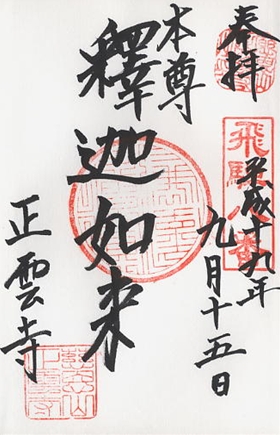 奉拝
飛騨八番
平成十九年
九月十五日
本尊
釋迦如来
正雲寺